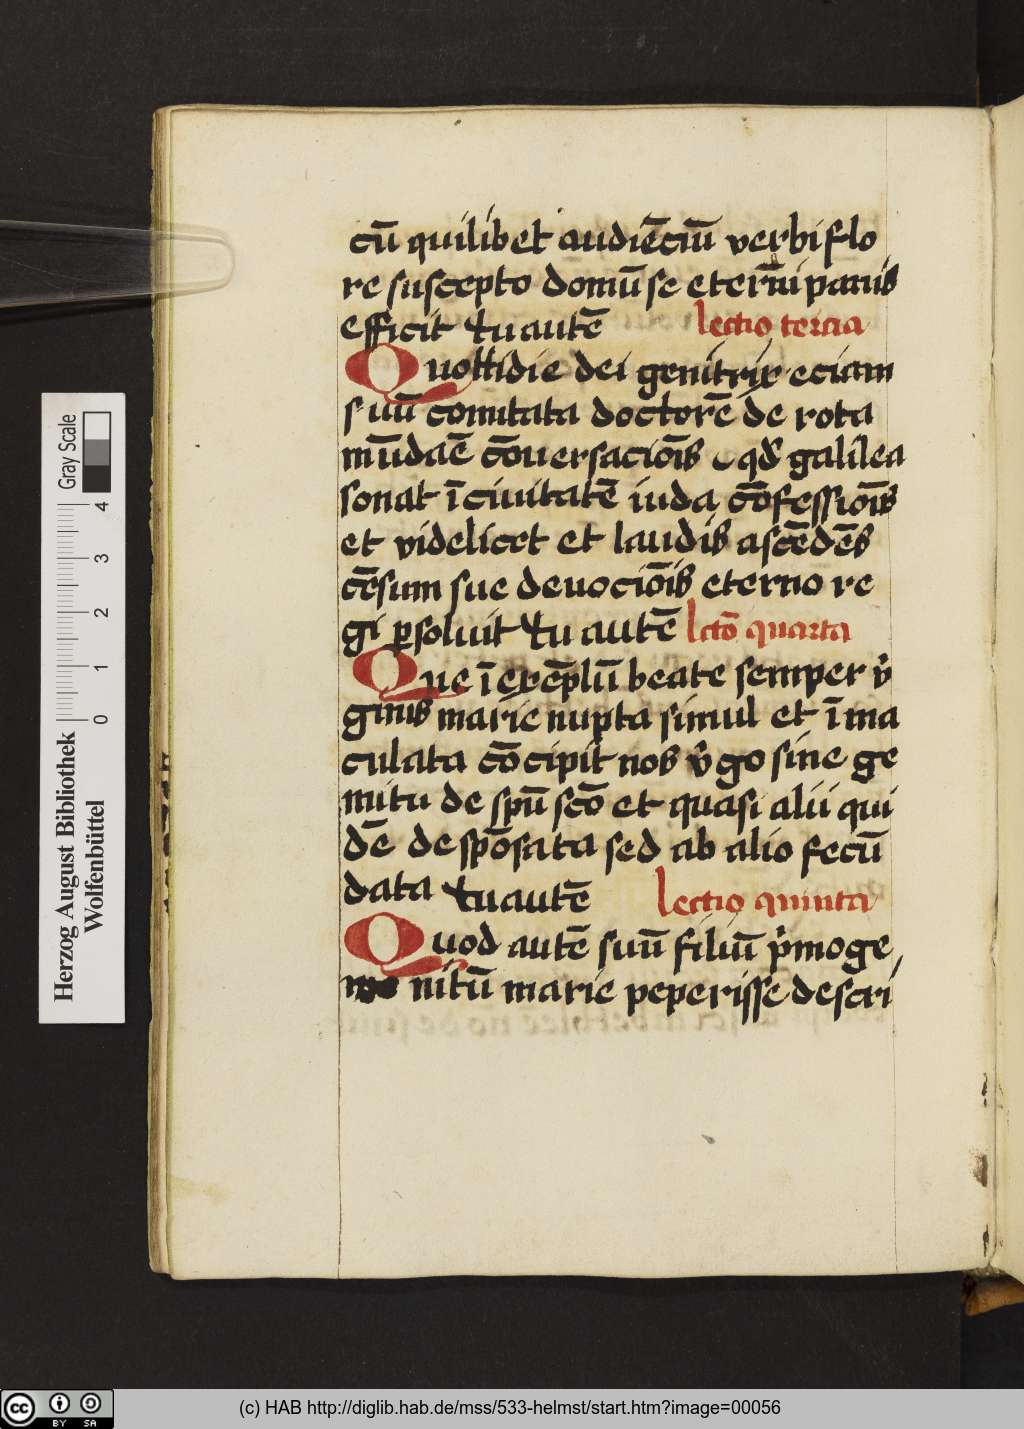 cū quilibet audiēciū verbi flo
re suscepto domū se eterni panis
efficit tu autē lectio tercia
Quottidie dei genitrix eciam
suū comitata doctorē de rota
mūdaē cōuersaciōis qd galilea
sonat ī ciuitatē iuda cōfessiōis
et videlicet et laudis ascēdēs
cēsum sue deuociōis eterno re
gi psoluit tu autē lctō quarta
Que ī exēplū beate semper v̄
ginis marie nupta simul et īma
culata cōcipit nos v̄go sine ge
mitu de spū scō et quasi alii qui
dē despōsata sed ab alio fecū
data tu autē Lectio quinta
Quod autē suū filiū p̄moge
nitū marie peperisse descri
Herzog August Bibliothek
Wolfenbüttel
0 1 2 3 4
Gray Scale
cc BY SA
(c) HAB http://diglib.hab.de/mss/533-helmst/start.htm?image=00056